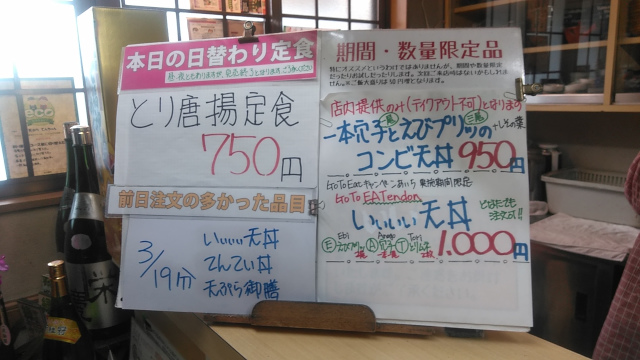 本日の日替わり定食
昼・夜ともありますが、完売終了となります ごうめんください
とり唐揚定食
750円
前日注文の多かった品目
3/19分
いいいい天丼
てんてい丼
天ぷら御膳
期間・数量限定品
特にオススメというわけではありませんが、期間や数量限定
だったりお試しだったりします。次はご来店時はないかもしれま
せん。※ご飯大盛りは50円増となります。
店内提供のみ(テイクアウト不可)となります
一本穴子とえびプリッの
コンビ天丼 950円
GoToEatキャンペーンあいち 実施期間限定
GoTo EATendon
いいいい天丼
1,000円
Ebi
Anago
Tori
E えびプリッ A 穴子 T とりムネ